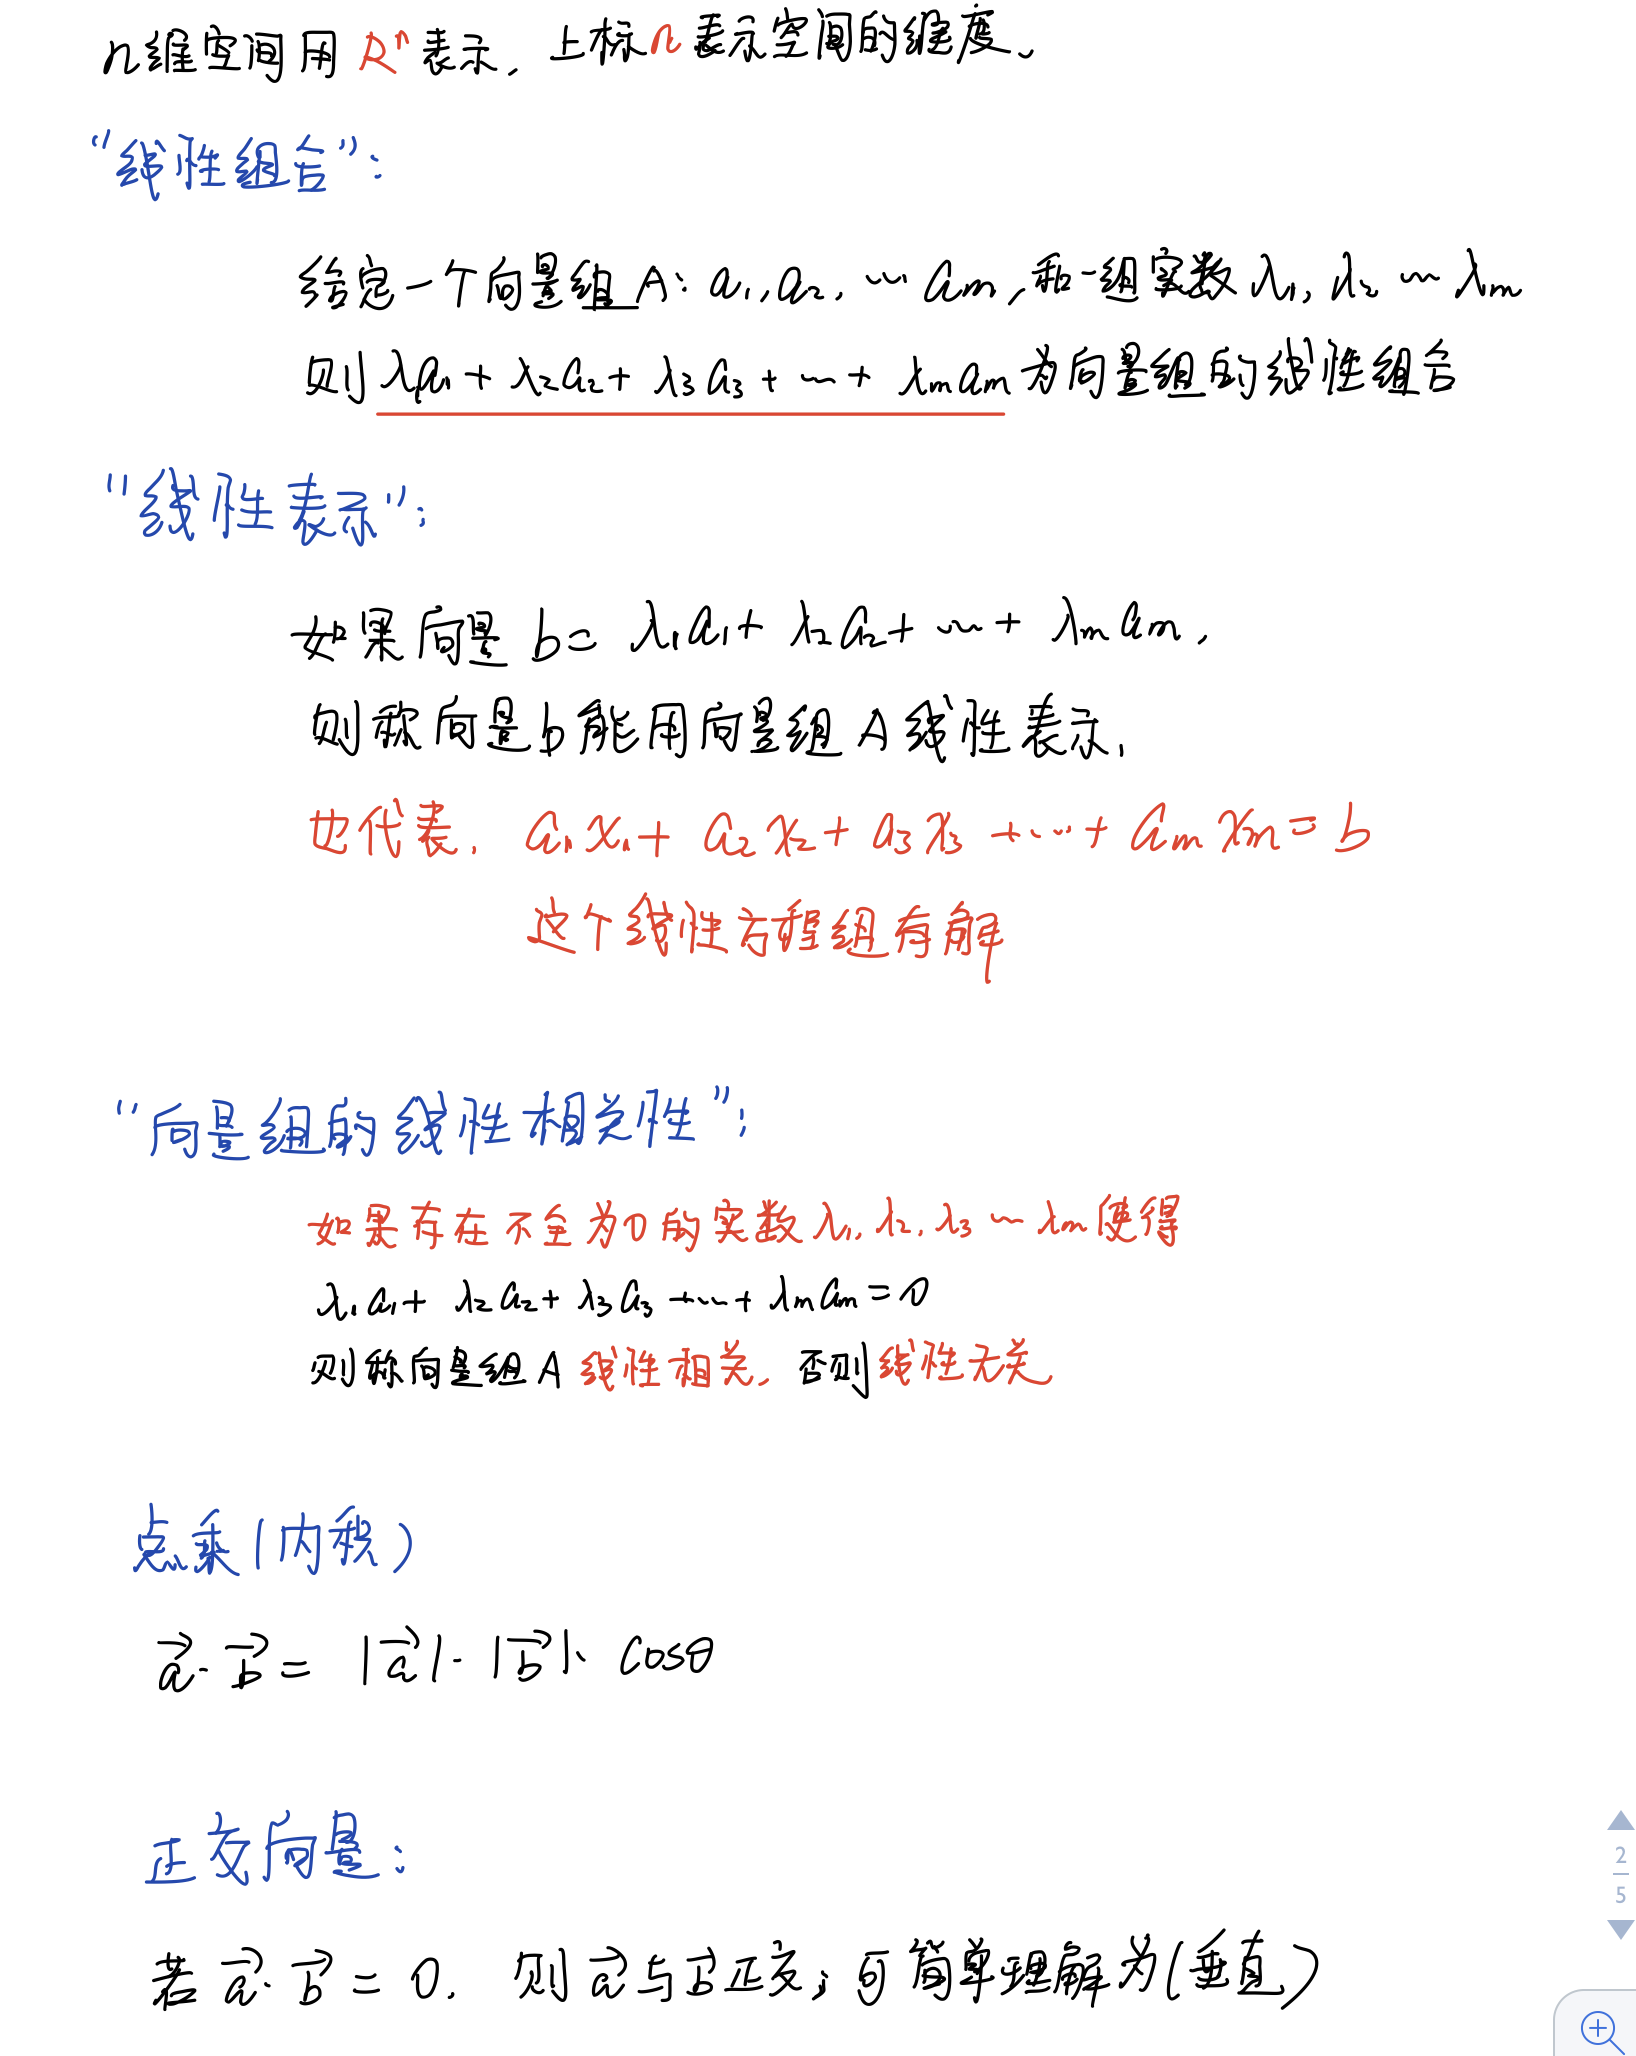 n维空间用 Rⁿ 表示, 上标n表示空间的维度、
"线性组合":
给定一个向量组A: a₁, a₂, … aₘ, 和一组实数 λ₁, λ₂ … λₘ
则 λ₁a₁ + λ₂a₂ + λ₃a₃ + … + λₘaₘ 为向量组的线性组合
"线性表示":
如果向量 b = λ₁a₁ + λ₂a₂ + … + λₘaₘ,
则称向量b能用向量组A线性表示,
也代表, a₁x₁ + a₂x₂ + a₃x₃ + … + aₘxₘ = b
这个线性方程组有解
"向量组的线性相关性":
如果存在不全为0的实数 λ₁, λ₂, λ₃ … λₘ 使得
λ₁a₁ + λ₂a₂ + λ₃a₃ + … + λₘaₘ = 0
则称向量组A 线性相关, 否则线性无关
点乘(内积)
a⃗ · b⃗ = |a⃗| · |b⃗| · cosθ
正交向量:
若 a⃗ · b⃗ = 0. 则 a⃗ 与 b⃗ 正交; 可简单理解为(垂直)
2
5